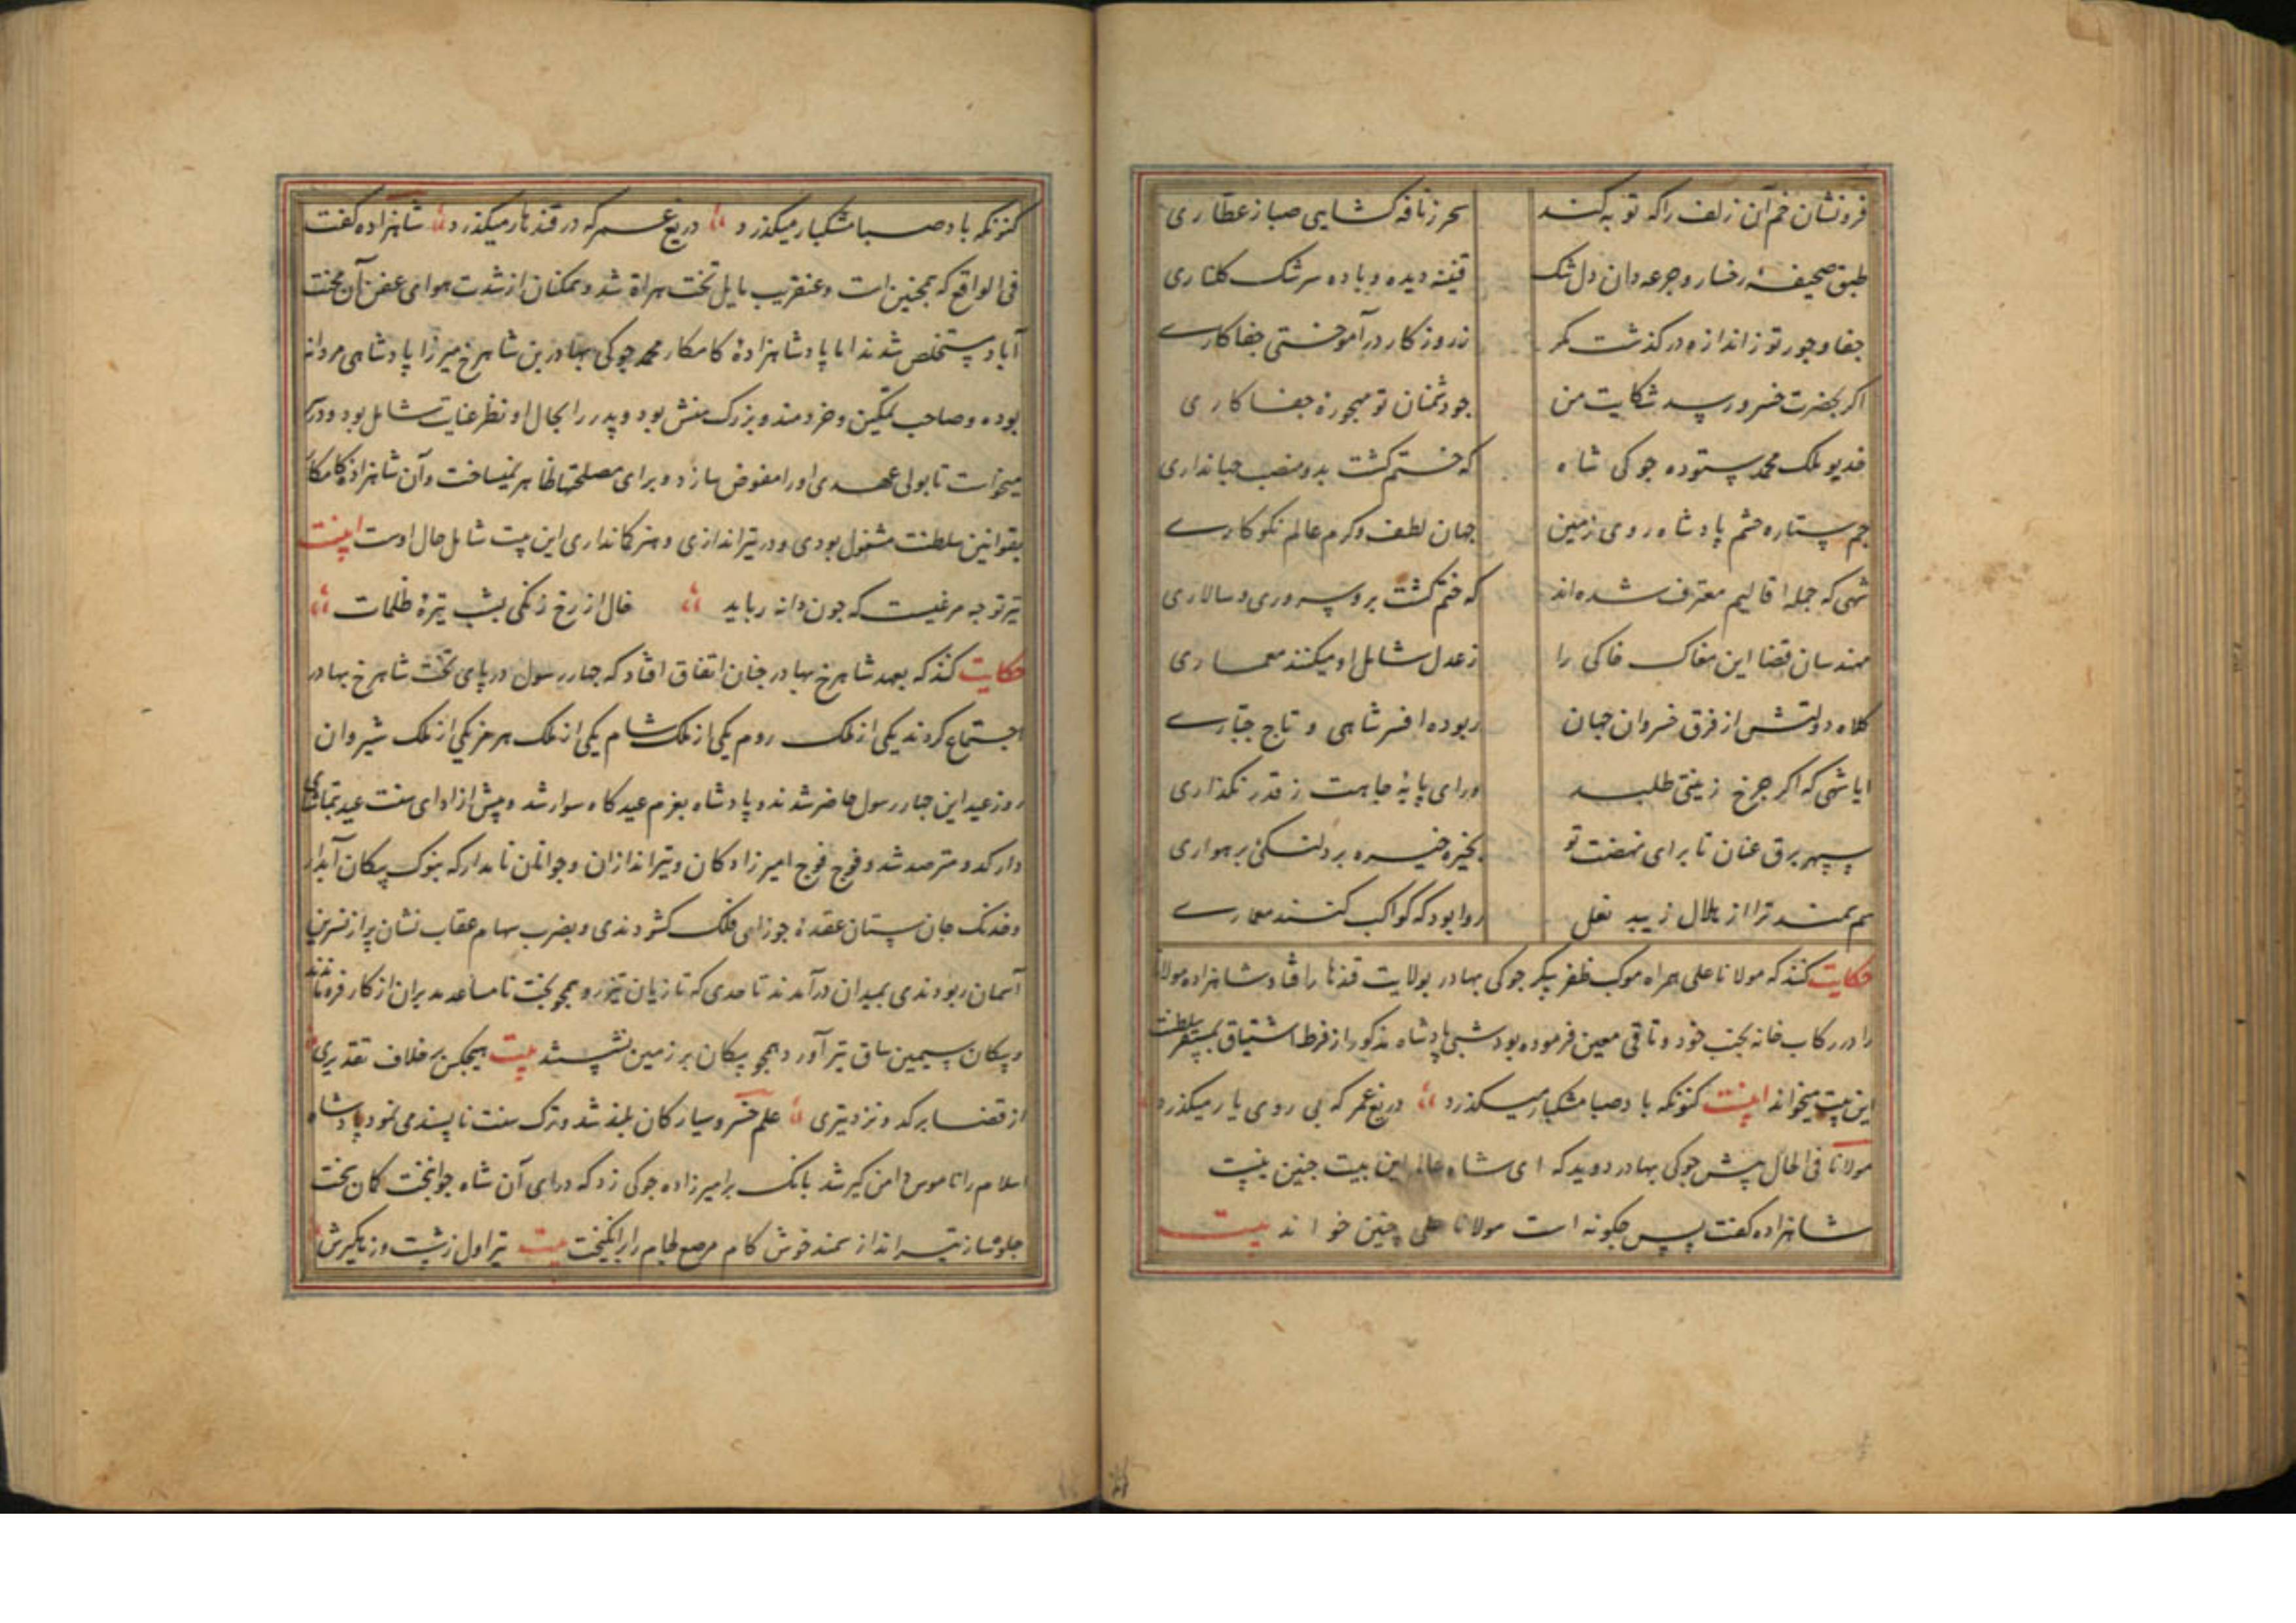 فرونشان خم آن زلف را که تو به کند سحر ز نافه کشایی صبا ز عطاری
طبق صحیفه رخسار و جرعه دان دل تنک قنینه دیده و باده سرشک کلناری
جفا و جور تو ز اندازه در کذشت مکر ز روزکار در آموختی جفاکاری
اکر بحضرت خسرو رسد شکایت من جو دشمنان تو
خدیو ملک محمد ستوده جوکی شاه که ختم کشت بدو منصب جهانداری
جم ستاره حشم پادشاه روی زمین جهان لطف و کرم عالم نکوکاری
شهی که جمله اقالیم معترف شده اند که ختم کشت برو سروری و سالاری
مهندسان قضا این مغاک خاکی را ز عدل شامل او میکنند معماری
کلاه دولتش از فرق خسروان جهان ربوده افسر شاهی و تاج جباری
ایا شهی که اکر جرخ زینتی طلبد ورای پایه جاهت ز قدر نکذاری
سپهر برق عنان تا برای نهضت تو بخیره خیره بر
سم سمند ترا از هلال زیبد نعل روا بود که کواکب کنند مسماری
حکایت کنند که مولانا علی همراه موکب ظفر پیکر جوکی بهادر بولایت قندهار افتاد و شاهزاده مولانا
را در رکاب خانه بجنب خود وثاقی معین فرموده بود شبی پادشاه مذکور از فرط اشتیاق بمستقر سلطنت
این بیت میخواند بیت کنونکه باد صبا مشکبار میکذرد دریغ عمر که بی روی یار میکذرد
مولانا فی الحال پیش جوکی بهادر دوید که ای شاه عالم این بیت جنین نیست
شاهزاده کفت پس جکونه است مولانا علی چنین خواند بیت
کنونکه باد صبا مشکبار میکذرد دریغ عمر که در قندهار میکذرد شاهزاده کفت
فی الواقع که همجنین است و عنقریب مایل تخت هراة شد و ممکنان از شدت هوای عفن آن محنت
آباد مستخلص شدند اما پادشاهزادهٔ کامکار محمد جوکی بهادر بن شاهرخ میرزا پادشاهی مردانه
بوده و صاحب تمکین و خردمند و بزرک منش بود و پدر را بحال او نظر عنایت شامل بود و در آن
میخواست تا بولی عهدی او را مفوض سازد و برای مصلحتها ظاهر نمیساخت و آن شاهزاده کامکار
بقوانین سلطنت مشغول بودی و در تیراندازی و هنر کمانداری این بیت شامل حال اوست بیت
تیر تو جه مرغیست که جون دانه رباید خال از رخ زنکی بشب تیرهٔ ظلمات
حکایت کنند که بعهد شاهرخ بهادر جنان اتفاق افتاد که جهار رسول در پای تخت شاهرخ بهادر
اجتماع کردند یکی از ملک روم یکی از ملک شام یکی از ملک هرمز یکی از ملک شیروان
روز عید این جهار رسول حاضر شدند و پادشاه بعزم عیدکاه سوار شد و پیش از ادای سنت عید بتماشای
دار کدو مترصد شد و فوج فوج امیرزادکان و تیراندازان و جوانان نامدار که بنوک پیکان آبدار
و خدنک جان ستان عقدهٔ جوزای فلک کشودندی و بضرب سهام عقاب نشان پر از نسرین
آسمان ربودندی بمیدان در آمدند تا حدی که تازیان تیزرو همجو بخت نامساعد مدبران از کار فرو ماندند
و پیکان سیمین ساق تیر آور همجو پیکان بر زمین نشستند بیت هیجکس بر خلاف تقدیری
از قضا بر کدو نزد تیری علم خسرو سیارکان بلند شد و ترک سنت ناپسند می نمود پادشاه
اسلام را ناموس دامن کیر شد بانک بر امیرزاده جوکی زد که در ای آن شاه جوانبخت کمان سخت
جلو ساز تیر انداز سمند خوش کام مرصع لجام را برانکیخت بیت تیر اول ز شست و زه کیرش